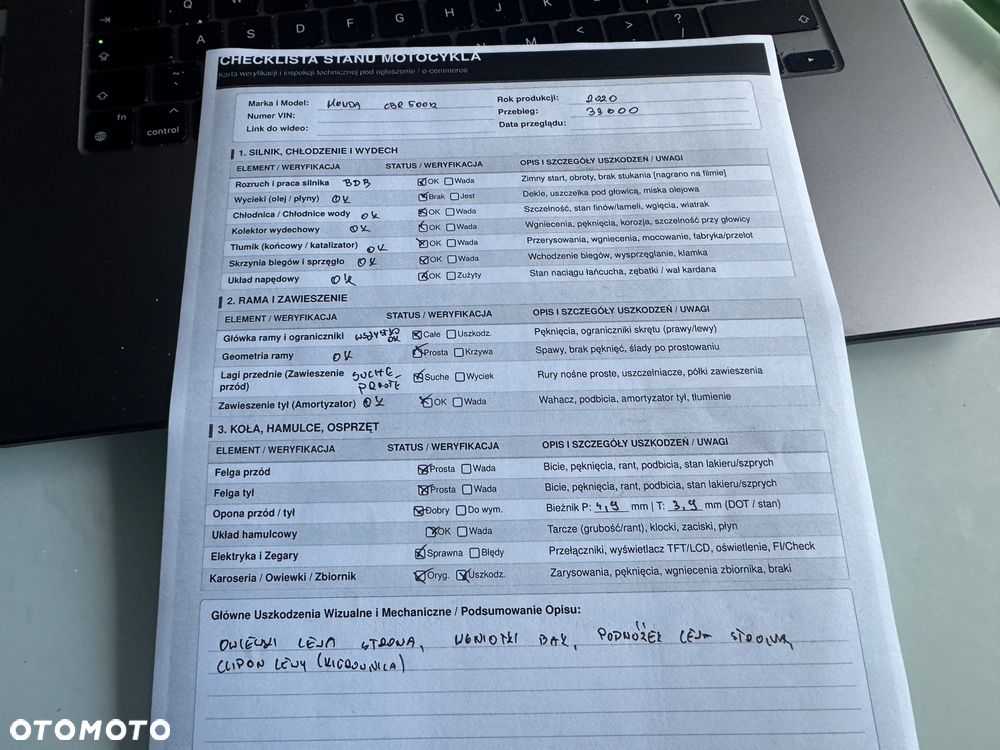 Q
A S D F G H J K L
N M < > ?
fn
control
CHECKLISTA STANU MOTOCYKLA
Karta weryfikacji i inspekcji technicznej pod ogłoszenie / e-commerce
Marka i Model: HONDA CBR 500R Rok produkcji: 2020
Numer VIN: Przebieg: 39000
Link do wideo: Data przeglądu:
1. SILNIK, CHŁODZENIE I WYDECH
ELEMENT / WERYFIKACJA STATUS / WERYFIKACJA OPIS I SZCZEGÓŁY USZKODZEŃ / UWAGI
Rozruch i praca silnika BDB OK Wada Zimny start, obroty, brak stukania [nagrano na filmie]
Wycieki (olej / płyny) OK Brak Jest Dekle, uszczelka pod głowicą, miska olejowa
Chłodnica / Chłodnice wody OK OK Wada Szczelność, stan finów/lameli, wgięcia, wiatrak
Kolektor wydechowy OK OK Wada Wgniecenia, pęknięcia, korozja, szczelność przy głowicy
Tłumik (końcowy / katalizator) OK OK Wada Przerysowania, wgniecenia, mocowanie, fabryka/przelot
Skrzynia biegów i sprzęgło OK OK Wada Wchodzenie biegów, wysprzęglanie, klamka
Układ napędowy OK OK Zużyty Stan naciągu łańcucha, zębatki / wał kardana
2. RAMA I ZAWIESZENIE
ELEMENT / WERYFIKACJA STATUS / WERYFIKACJA OPIS I SZCZEGÓŁY USZKODZEŃ / UWAGI
Główka ramy i ograniczniki WSZYSTKO OK Całe Uszkodz. Pęknięcia, ograniczniki skrętu (prawy/lewy)
Geometria ramy OK Prosta Krzywa Spawy, brak pęknięć, ślady po prostowaniu
Lagi przednie (Zawieszenie przód) SUCHE_ PROSTE Suche Wyciek Rury nośne proste, uszczelniacze, półki zawieszenia
Zawieszenie tył (Amortyzator) OK OK Wada Wahacz, podbicia, amortyzator tył, tłumienie
3. KOŁA, HAMULCE, OSPRZĘT
ELEMENT / WERYFIKACJA STATUS / WERYFIKACJA OPIS I SZCZEGÓŁY USZKODZEŃ / UWAGI
Felga przód Prosta Wada Bicie, pęknięcia, rant, podbicia, stan lakieru/szprych
Felga tył Prosta Wada Bicie, pęknięcia, rant, podbicia, stan lakieru/szprych
Opona przód / tył Dobry Do wym. Bieżnik P: 4,9 mm | T: 3,9 mm (DOT / stan)
Układ hamulcowy OK Wada Tarcze (grubość/rant), klocki, zaciski, płyn
Elektryka i Zegary Sprawna Błędy Przełączniki, wyświetlacz TFT/LCD, oświetlenie, FI/Check
Karoseria / Owiewki / Zbiornik Oryg. Uszkodz. Zarysowania, pęknięcia, wgniecenia zbiornika, braki
Główne Uszkodzenia Wizualne i Mechaniczne / Podsumowanie Opisu:
OWIEWKI LEWA STRONA, WGNIOTKI BAK, PODNÓŻEK LEWA STRONA,
CLIPON LEWY (KIEROWNICA)
OTOMOTO